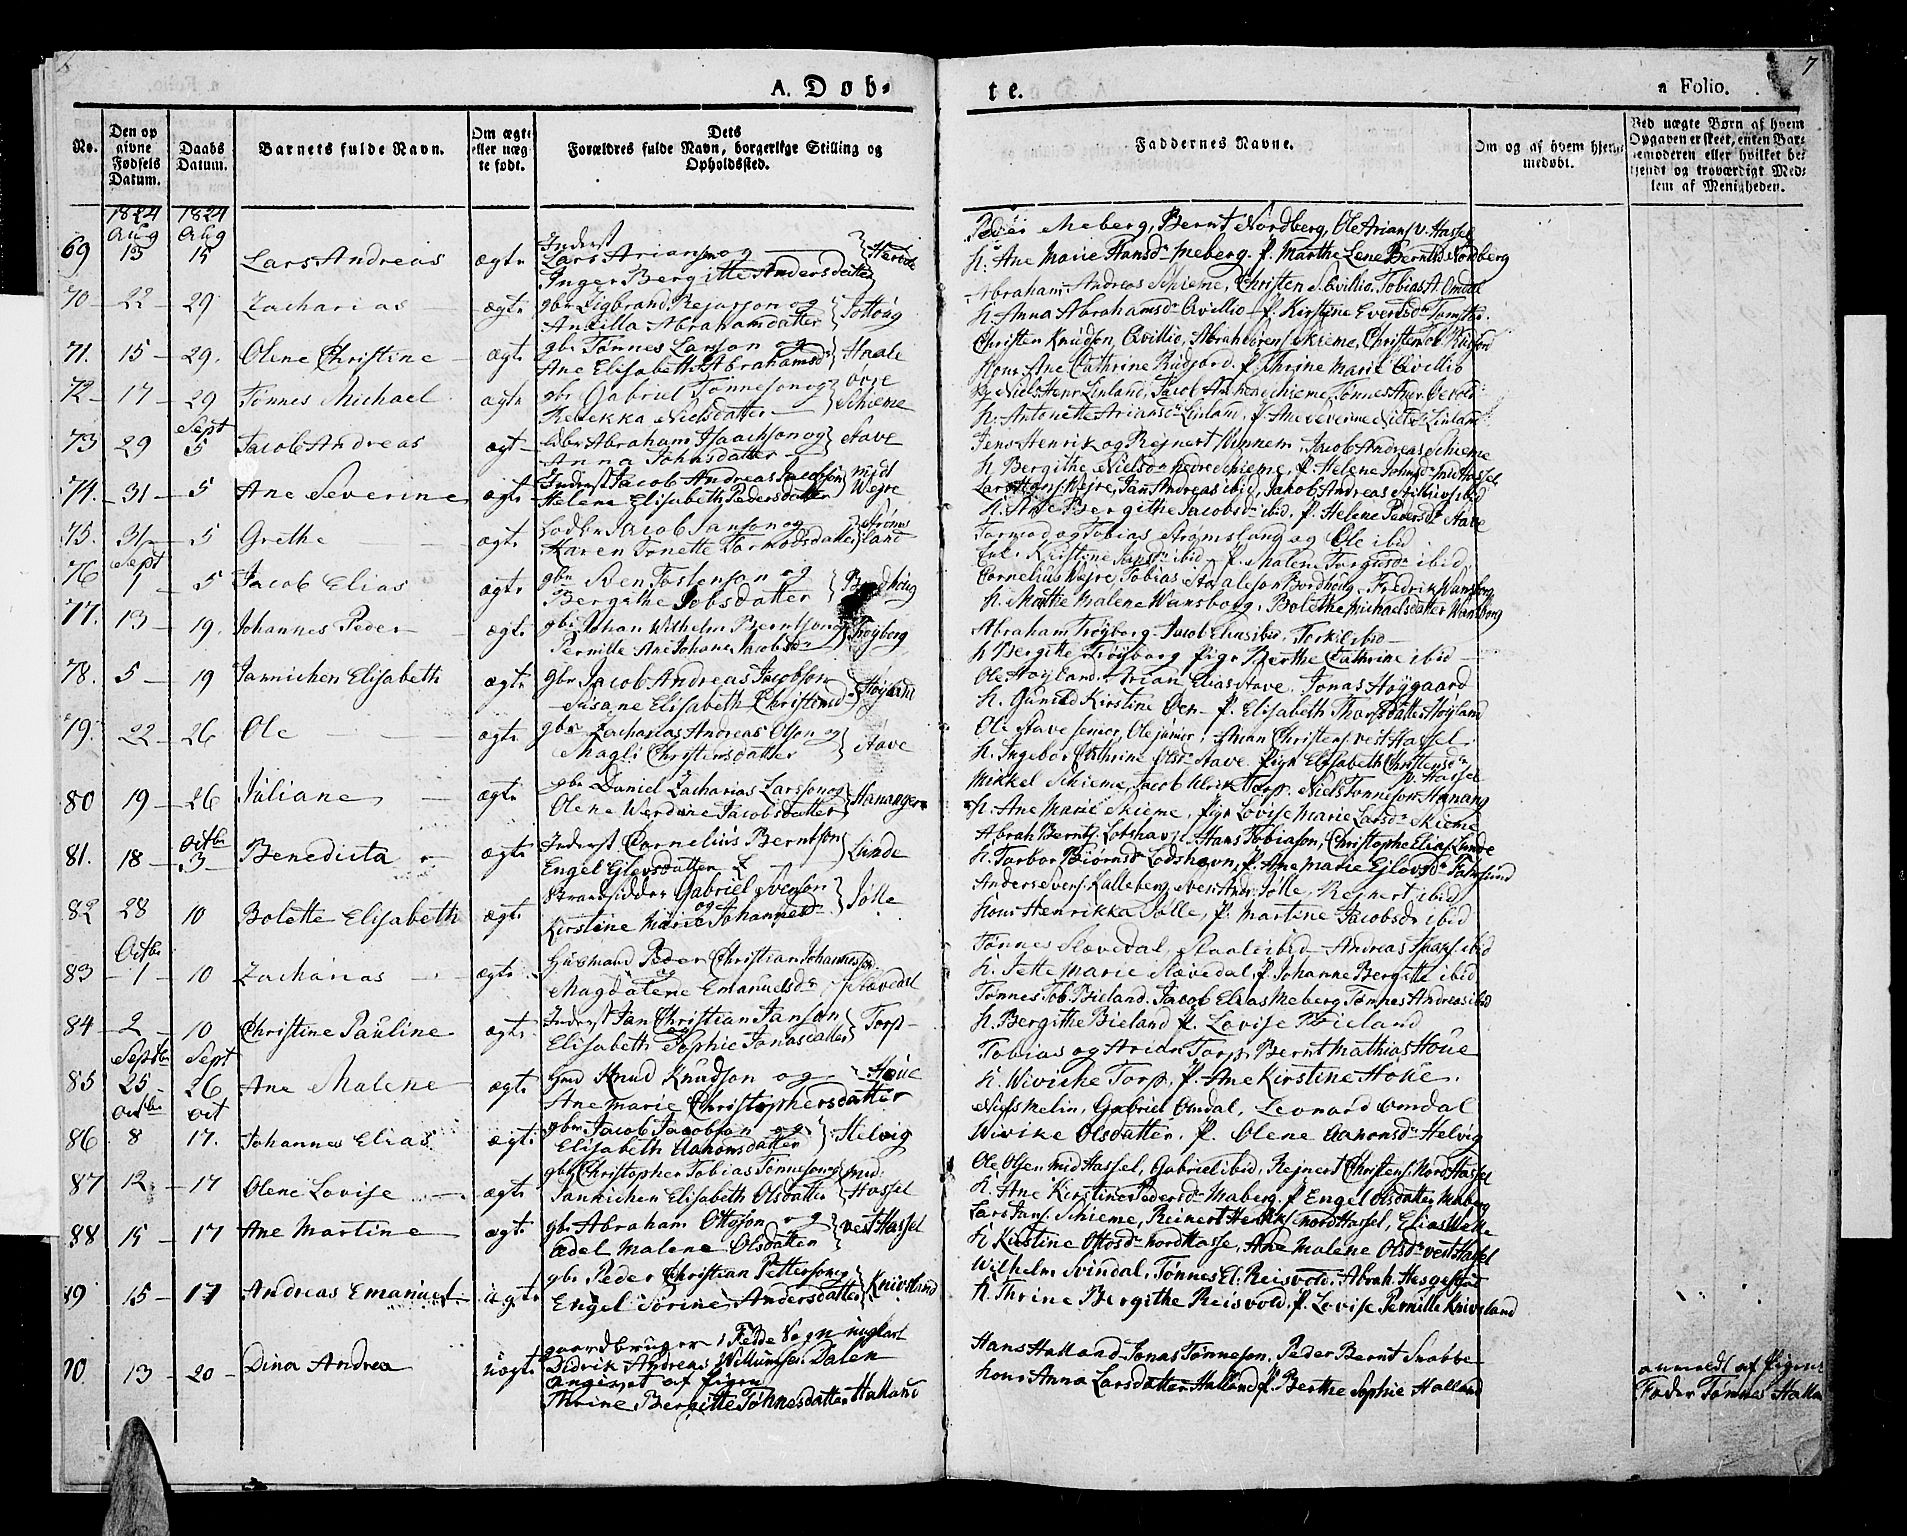 7
A. Døb-
te.
a Folio.
No.
Den opgivne Fødsels Datum.
Daabs Datum.
Barnets fulde Navn.
Om ægte eller uægte født.
Dets Forældres fulde Navn, borgerlige Stilling og Opholdssted.
Faddernes Navne.
Om og af hvem hjemmedøbt.
Ved uægte Børn af hvem Opgaven er skeet, enten Barnemoderen eller hvilket bekjendt og troværdigt Medlem af Menigheden.
1824 Aug 1824 Aug
69 13 15 Lars Andreas ægte Inderst Lars Arianson og
Inger Bergitte Andersdatter
Meberg, Bernt Nordberg, Ole Arians v. Hassel
K. Ane Marie Hansdr Meberg. P. Marthe Lene Berntsd Nordberg
70 22 29 Zacharias ægte gbr Sigbrand Rejarson og
Ancilla Abrahamsdatter
Abraham Andreas Schieme, Christen S. Qvillio, Tobias A. Omdal
K. Anna Abrahamsdr Qvillio P. Kirstine Evertsdr
71. 15 29. Olene Christine ægte gbr Tønnes Larson og
Ane Elisabeth Abrahamsdr
Christen Knudson, Qvillio, Abrah Sørens Skieme, Christen Rudjord
Kone Ane Cathrine Rudjord. P. Thrine Marie Qvillio
72 17 29 Tønnes Michael ægte gbr Gabriel Tønneson og
Rebekka Nielsdatter Øvre Schieme
Niels Henr Linland, Jacob Schieme Tønnes
K. Antonette Ariansdr Linland, P. Ane Severine Nielsdr Linland
Sept
73 29 5 Jacob Andreas ægte Abraham Isaachson og
Anna Johnsdatter Stave
Jens Henrik og Rejnert Vinnem, Jacob Andreas Schieme
K. Bergithe Nielsdr nedre Schieme, P. Helene Johnsdr mid Hassel
74. 31 5 Ane Severine ægte Inderst Jacob Andreas Jacobson
Helene Elisabeth Pedersdatter mid Wejre
Lars Hans Wejre, Jan Andreas ibid, Jakob Andreas ibid
K. Bergithe Jacobsdr ibid. P. Helene Pedersdr Stave
75. 31 5 Grethe ægte Jacob Janson og
Karen Tonette Tarmodsdatter Strømsland
Tarmod og Tobias Strømsland og Ole ibid
Kirstine ibid P. Malene Torgusdr ibid
Sept
76 1 5 Jacob Elias ægte gbr Sven Tostenson og
Bergithe Jobsdatter
Cornelius Wejre, Tobias Bordhoug. Fredrik Wansborg
K. Marthe Malene Wansborg. Bolethe Michaelsdatter Wansborg
77. 13 19. Johannes Peder ægte gbr Johan Wilhelm Berntson og
Pernille Ane Johane Jacobsdr Trøyborg
Abraham Trøyborg Jacob Elias ibid. Torkil ibid
K Bergitte Trøyborg Pige Berthe Cathrine ibid
78. 5 19 Jannichen Elisabeth ægte gbr Jacob Andreas Jacobson
Susane Elisabeth Christensd Høyland
Ole Høyland. Arian Elias Stave. Jonas Høygaard
K. Gunild Kirstine P. Elisabeth Høyland
79. 22 26 Ole ægte gbr Zacharias Andreas Olson og
Magli Christensdatter Stave
Ole Stave senior, Ole junior, Arian Christens vest Hassel
K. Ingebor Cathrine Olsdr Stave. Pige Elisabeth Christensdr
v. Hassel
80 19 26 Juliane ægte gbr Daniel Zacharias Larsson og
Olene Werdine Jacobsdatter Hananger
Mikkel Schieme, Jacob Ulrik Torp. Niels Tønneson Hanang
K. Ane Marie Skieme, Pige Lovise Marie Larsdr Skieme
Octbr
81. 18 3 Benedicta ægte Inderst Cornelius Berntson
Engel Ejlevsdatter Lunde
Abrah Berntsn Lotshavn. Hans Tobiasson, Christophe Elias Lunde
K. Torbor Biørnsdr Lodshavn, P. Ane Marie Ejlovsdr Farsund
82 28 10 Bolette Elisabeth ægte Strandsidder Gabriel Svenson
og Kirstine Marie Johannesdr Jølle
Anders Svens. Kalleberg, Sven Andr. Jølle, Rejnert ibid
Kone Henrikka Jølle, P. Martine Jacobsdr ibid
Octbr
83 1 10 Zacharias ægte Husmand Peder Christian Johannesson
og Magdalene Emanuelsdr Slævedal
Tønnes Slævedal, Staale ibid Andreas ibid
K. Jette Marie Slævedal, P. Johanne Bergitte ibid
84 2 10 Christine Pauline ægte Inderst Jan Christian Janson
Elisabeth Sophie Jonasdatter Torp
Tønnes Tob. Bieland. Jacob Elias Meberg Tønnes Andreas ibid
K. Bergithe Bieland P. Lovise Bieland
Septbr Sept
85 25 26 Ane Malene ægte Knud Knudson og Houe
Ane Marie Christophersdatter
Tobias og Arian Torp, Bernt Mathias Houe
K. Wiviche Torp. P. Ane Kirstine Houe.
Octbr Oct
86 8 17. Johannes Elias ægte gbr Jacob Jacobson og
Elisabeth Aanonsdatter Helvig
Niels Melin, Gabriel Omdal, Leonard Omdal
Wivike Olsdatter. P. Olene Aanonsdr Helvig
87 12 17 Olene Lovise ægte gbr Christopher Tobias Tønneson og
Jannichen Elisabeth Olsdatter mid. Hassel
Ole Olsen mid Hassel, Gabriel ibid, Rejnert Christens. Nord Hassel
K. Ane Kirstine Pedersdr Maberg. P. Engel Olsdatter Maberg
88 15 17 Ane Martine ægte gbr Abraham Ottoson og
Adel Malene Olsdatter vest Hassel
Lars Jans. Schieme, Reinert Henriks. nord Hassel, Elias
K Kirstine Ottosdr nord Hasse, Ane Malene Olsdr vest Hassel
89 15 17 Andreas Emanuel ægte gbr Peder Christian Petterson og
Engel Sorine Andersdatter Knivsland
Wilhelm Svindal, Tønnes El. Reisvold. Abrah.
K. Thrine Bergithe Reisvold. P. Lovise Pernille Knivsland
90 13 20 Dina Andrea uægte gaardbruger i Fede Sogn
Didrik Andreas Willumsen Dalen
angivet af Pigen
Thrine Bergitte Tønnesdatter Halland
Hans Halland Jonas Tønneson. Peder Bernt Snabbe
Kone Anna Larsdatter Halland P. Berthe Sophie Halland
anmeldt af Pigens
Fader Tønnes Halland